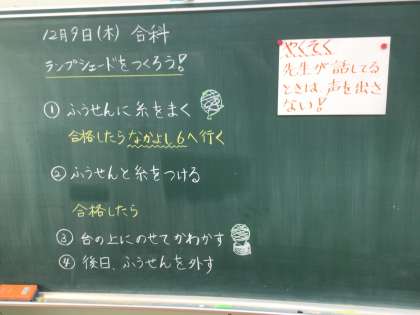 12月9日(木) 合科
ランプシェードをつくろう!
① ふうせんに糸をまく
合格したらなかよし6へ行く
② ふうせんと糸をつける
合格したら
③ 台の上にのせてかわかす
④ 後日、ふうせんを外す
やくそく
先生が話してる
ときは、声を出さ
ない!